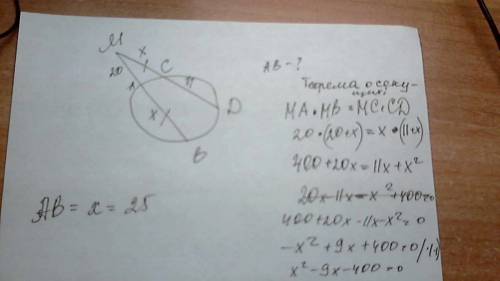 M
x
20
C
11
A
D
x
B
AB = x = 25
AB - ?
Теорема о секу-
щих:
MA • MB = MC • CD
20 • (20+x) = x • (11+x)
400 + 20x = 11x + x²
20x - 11x = x² + 400 = 0
400 + 20x - 11x - x² = 0
-x² + 9x + 400 = 0 / •(-1)
x² - 9x - 400 = 0